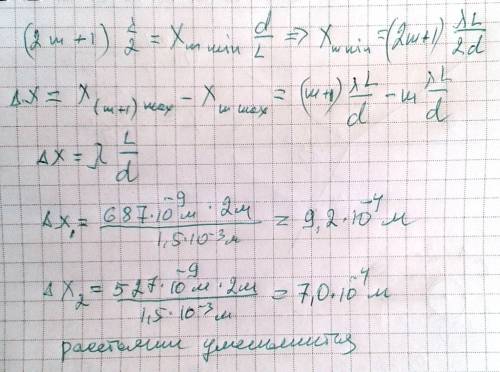 (2m+1) λ/2 = X m min d/L => X m min = (2m+1) λL/2d
ΔX = X (m+1) max − X m max = (m+1) λL/d − m λL/d
ΔX = λ L/d
ΔX₁ = 687·10⁻⁹м · 2м / 1,5·10⁻³м = 9,2·10⁻⁴м
ΔX₂ = 527·10⁻⁹м · 2м / 1,5·10⁻³м = 7,0·10⁻⁴м
расстояние уменьшится